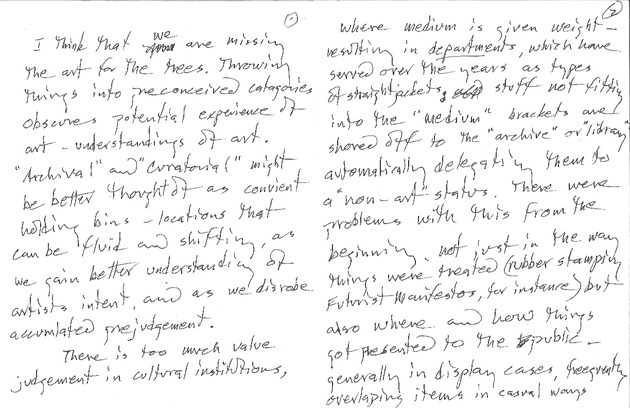 1
I think that we are missing
the art for the trees. Throwing
things into preconceived catagories
obscures potential experience of
art - understandings of art.
"Archival" and "curatorial" might
be better thought of as convient
holding bins - locations that
can be fluid and shifting, as
we gain better understanding of
artists intent, and as we disrobe
accumlated prejudgement.
There is too much value
judgement in cultural institutions,
2
where medium is given weight -
resulting in departments, which have
served over the years as types
of straightjackets, stuff not fitting
into the "medium" brackets are
shoved off to the "archive" or "library"
automatically delegating them to
a "non-art" status. There were
problems with this from the
beginning, not just in the way
things were treated (rubber stamping
Futurist Manifestos, for instance) but
also where and how things
got presented to the public -
generally in display cases, freequently
overlaping items in casual ways